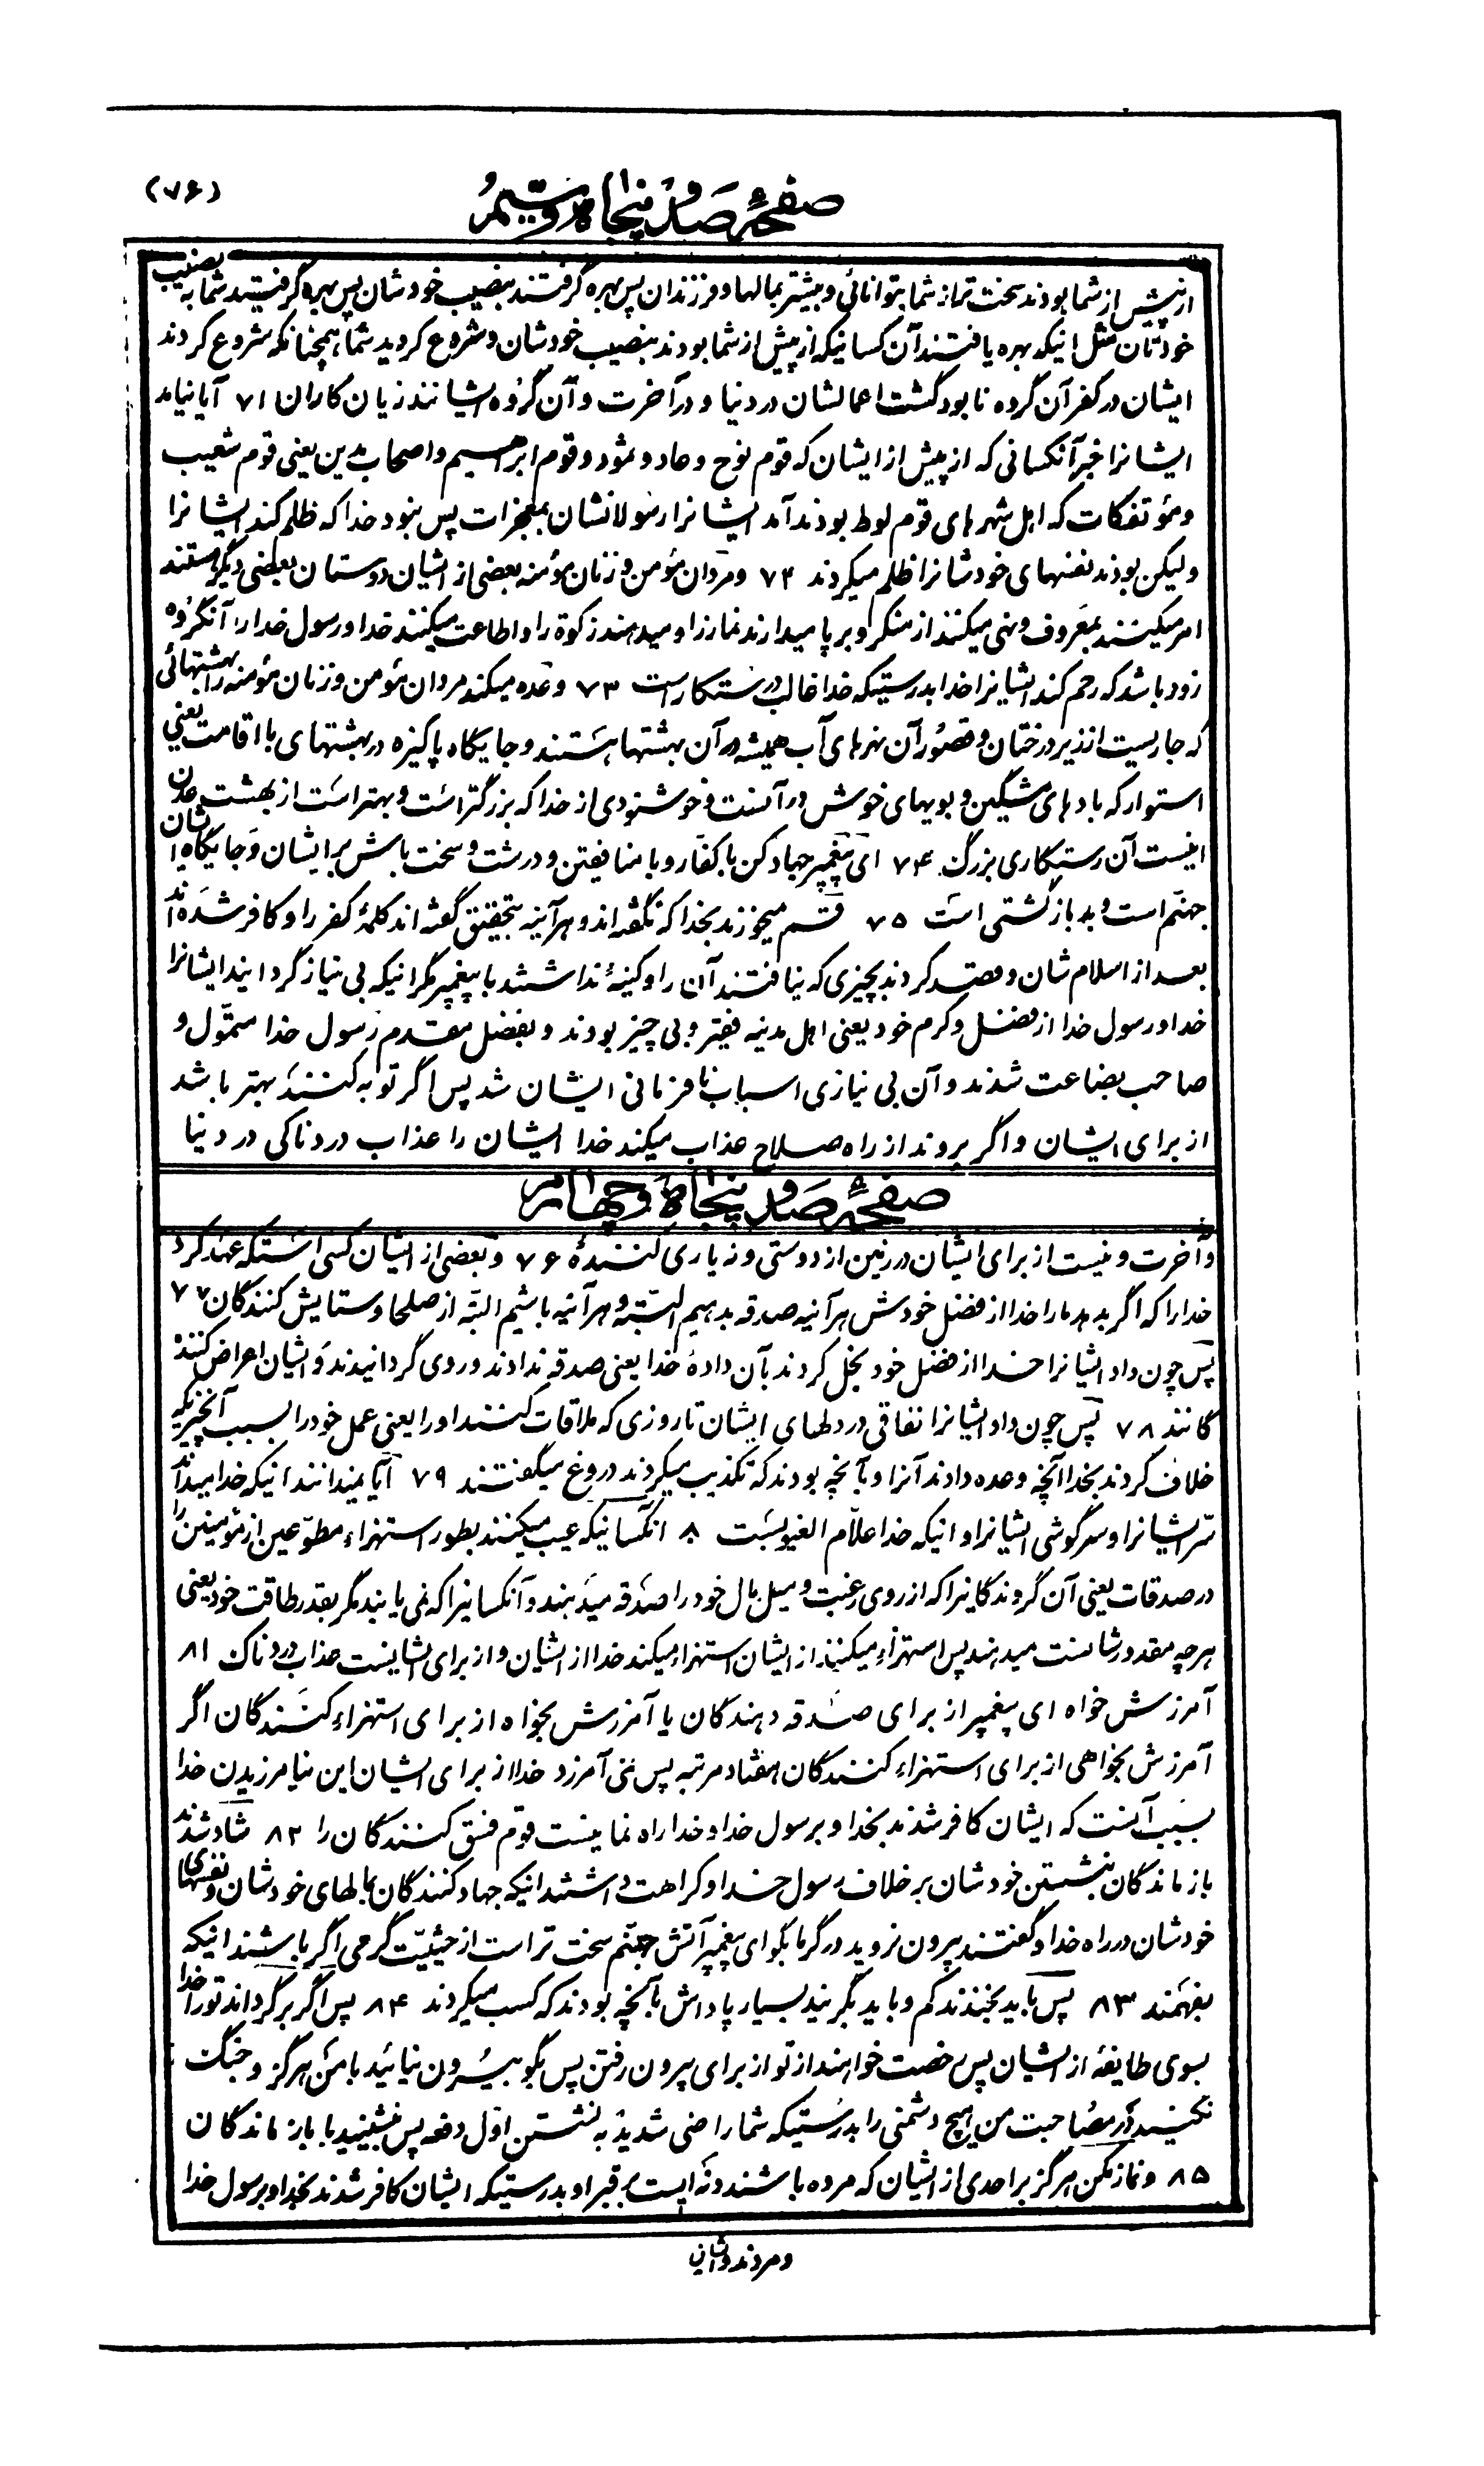 (۷۶)
صفحهٔ صد و پنجاه و سیم
از پیش از شما بودند سخت تر از شما بتوانائی و بیشتر بمالها و فرزندان پس بهره گرفتند بنصیب خودشان پس بهره گرفتید شما به نصیب
خودتان مثل انیکه بهره یافتند آن کسانیکه از پیش از شما بودند بنصیب خودشان و شروع کردید شما همچنانکه شروع کردند
ایشان در کفر آن گروه نابود گشت اعمالشان در دنیا و در آخرت و آن گروه ایشانند زیان کاران ۷۱ آیا نیامد
ایشانرا خبر آنکسانی که از پیش از ایشان که قوم نوح و عاد و ثمود و قوم ابراهسیم و اصحاب مدین یعنی قوم شعیب
و مؤتفکات که اهل شهرهای قوم لوط بودند آمد ایشانرا رسولانشان بمعجزات پس نبود خدا که ظلم کند ایشانرا
ولیکن بودند نفسهای خودشانرا ظلم میکردند ۷۲ و مردان مؤمن و زنان مؤمنه بعضی از ایشان دوستان بعضی دیگر هستند
امر میکنند بمعروف و نهی میکنند از منکر و بر پا میدارند نماز را و میدهند زکوة را و اطاعت میکنند خدا و رسول خدا را آنگروه
زود باشد که رحم کند ایشانرا خدا بدرستیکه خدا غالب درستکار است ۷۳ وعده میکند مردان مؤمن و زنان مؤمنه را بهشتهائی
که جاریست از زیر درختان و قصور آن نهرهای آب همیشه در آن بهشتها هستند و جایگاه پاکیزه در بهشتهای با اقامت یعنی
استوار که بادهای مشگین و بویهای خوش در آنست و خوشنودی از خدا که بزرگتر است و بهتر است از بهشت عدن
اینست آن رستگاری بزرگ ۷۴ ای پیغمبر جهاد کن با کفار و با منافقین و درشت و سخت باش بر ایشان و جایگاه ایشان
جهنّم است و بد بازگشتی است ۷۵ قسم میخورند بخدا که نگفته اند و هر آینه بتحقیق گفته اند کلمهٔ کفر را و کافر شده اند
بعد از اسلام شان و قصد کردند بچیزی که نیافتند آن را و کینهٔ نداشتند با پیغمبر مگر انیکه بی نیاز گردانید ایشانرا
خدا و رسول خدا از فضل و کرم خود یعنی اهل مدینه فقیر و بی چیز بودند و بفضل مقدم رسول خدا متموّل و
صاحب بضاعت شدند و آن بی نیازی اسباب نافرمانی ایشان شد پس اگر توبه کنند بهتر باشد
از برای ایشان و اگر بروند از راه صلاح عذاب میکند خدا ایشان را عذاب دردناکی در دنیا
صفحهٔ صد و پنجاه و چهارم
و آخرت و نیست از برای ایشان در زمین از دوستی و نه یاری کنندهٔ ۷۶ و بعضی از ایشان کسی استکه عهد کرد
خدا را که اگر بدهد ما را خدا از فضل خودش هر آینه صدقه بدهیم البتّه و هر آینه باشیم البتّه از صلحا و ستایش کنندگان ۷۷
پس چون داد ایشانرا خدا از فضل خود بخل کردند بآن دادهٔ خدا یعنی صدقه ندادند و روی گردانیدند و ایشان اعراض کننده
گانند ۷۸ پس چون داد ایشانرا نفاقی در دلهای ایشان تا روزی که ملاقات کنند او را یعنی عمل خود را بسبب آنچیزیکه
خلاف کردند بخدا آنچه وعده دادند آنرا و بآنچه بودند که تکذیب میکردند دروغ میگفتند ۷۹ آیا نمیدانند انیکه خدا میداند
سرّ ایشانرا و سرگوشی ایشانرا و انیکه خدا علاّم الغیوبست ۸۰ آنکسانیکه عیب میکنند بطور استهزاء مطوّعین از مؤمنین را
در صدقات یعنی آن گروندگانیرا که از روی رغبت و میل مال خود را صدقه میدهند و آنکسانیرا که نمی یابند مگر بقدر طاقت خود یعنی
هر چه مقدورشانست میدهند پس استهزاء میکنند از ایشان استهزاء میکند خدا از ایشان و از برای ایشانست عذاب دردناک ۸۱
آمرزش خواه ای پیغمبر از برای صدقه دهندگان یا آمرزش نخواه از برای استهزاء کنندگان اگر
آمرزش بخواهی از برای استهزاء کنندگان هفتاد مرتبه پس نمی آمرزد خدا از برای ایشان این نیامرزیدن خدا
بسبب آنست که ایشان کافر شدند بخدا و برسول خدا و خدا راه نما نیست قوم فسق کنندگان را ۸۲ شاد شدند
بازماندگان بنشستن خودشان بر خلاف رسول خدا و کراهت داشتند انیکه جهاد کنندگان بمالهای خودشان و نفسهای
خودشان در راه خدا و گفتند بیرون نروید در گرما بگو ای پیغمبر آتش جهنّم سخت تر است از حیثیّت گرمی اگر باشند انیکه
بفهمند ۸۳ پس باید بخندند کم و باید بگریند بسیار پاداش بآنچه بودند که کسب میکردند ۸۴ پس اگر برگرداند تو را خدا
بسوی طایفهٔ از ایشان پس رخصت خواهند از تو از برای بیرون رفتن پس بگو بیرون نیائید با من هرگز و جنگ
نکنید در مصاحبت من هیچ دشمنی را بدرستیکه شما راضی شدید به نشستن اوّل دفعه پس بنشینید با بازماندگان
۸۵ و نماز مکن هرگز بر احدی از ایشان که مرده باشند و نه ایست بر قبر او بدرستیکه ایشان کافر شدند بخدا و برسول خدا
و مردند و ایشان